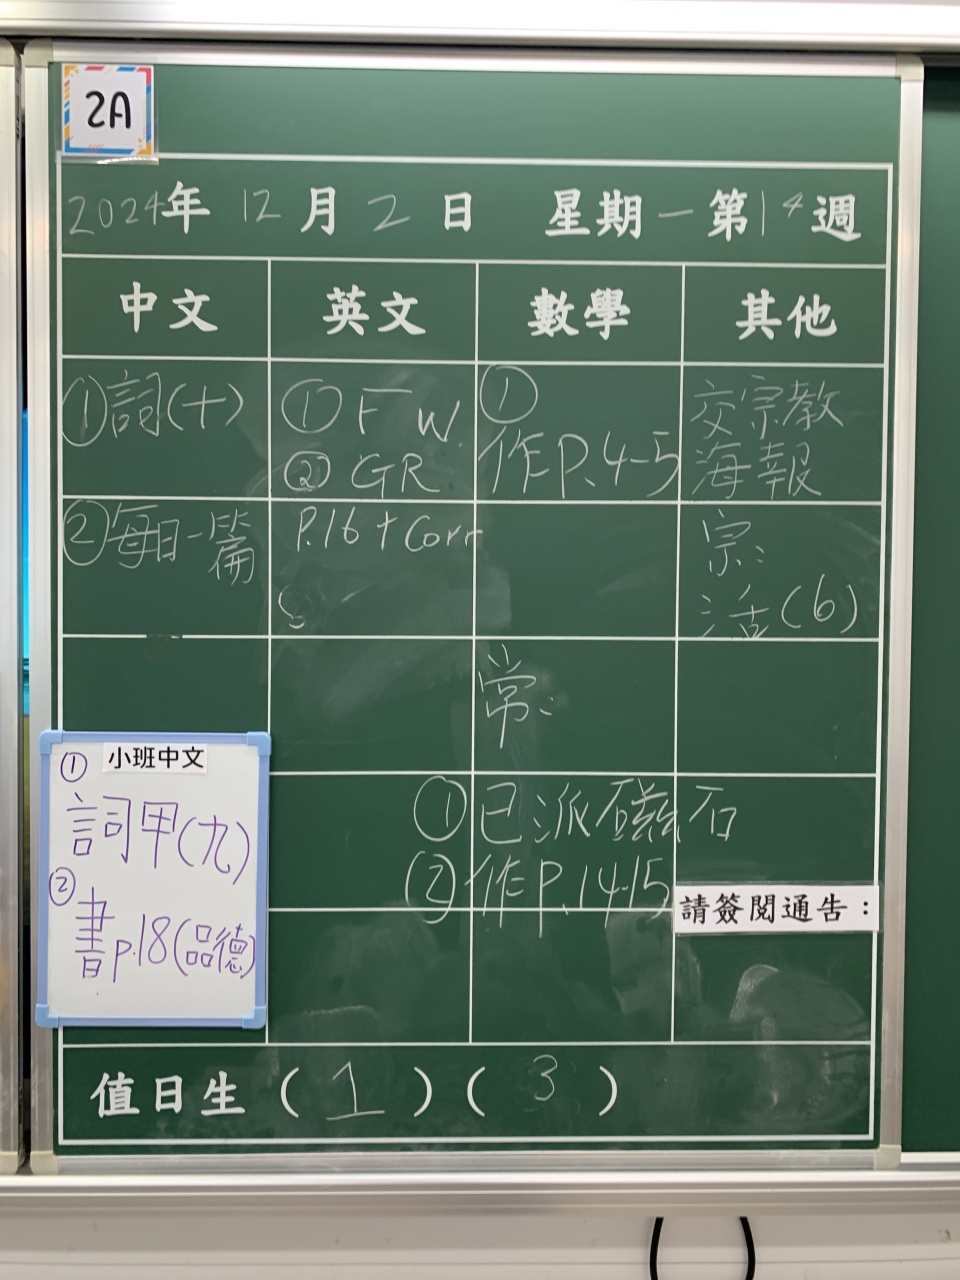 2A
2024年 12月 2日 星期一 第14週
中文 英文 數學 其他
①詞(十)
②每日一篇
① F W.
② GR
P.16 + Corr
①
作P.4-5
交宗教
海報
宗:
活(6)
常:
①已派磁石
②作P.14-15
請簽閱通告：
小班中文
①
詞甲(九)
②
書p.18(品德)
值日生 ( 1 ) ( 3 )